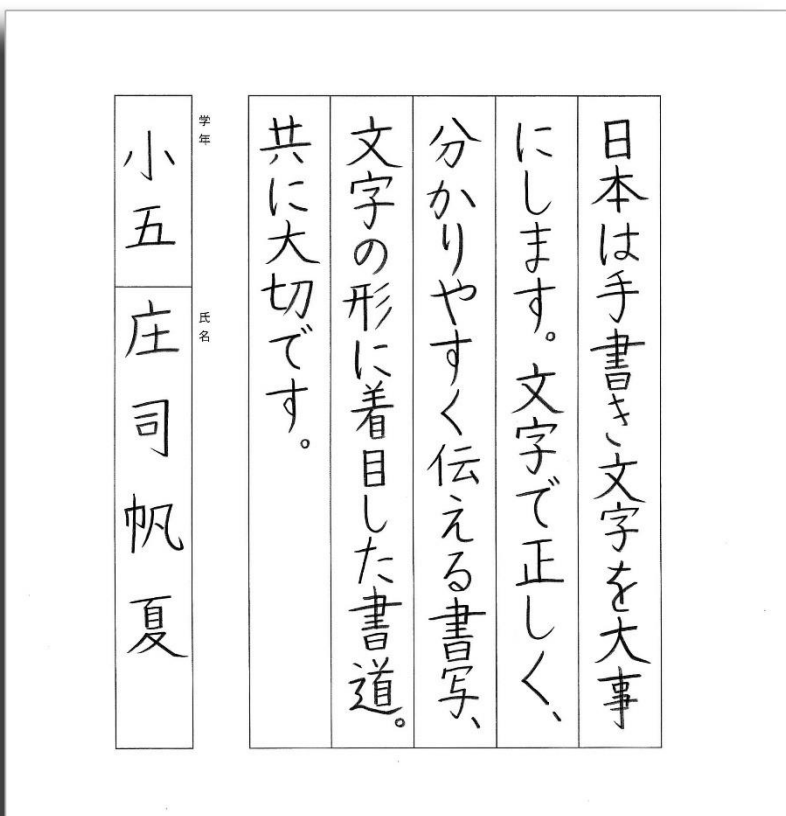 日本は手書き文字を大事
にします。文字で正しく、
分かりやすく伝える書写、
文字の形に着目した書道。
共に大切です。
学年
小五
氏名
庄司帆夏